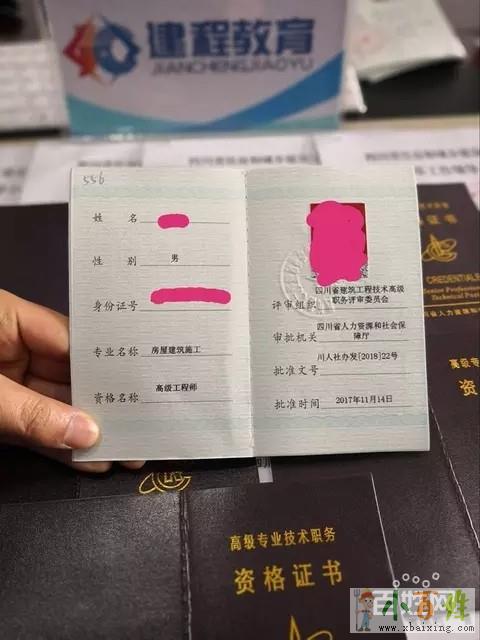 建程教育
JIANCHENGJIAOYU
556
姓 名
性 别 男
身份证号
专业名称 房屋建筑施工
资格名称 高级工程师
评审组织 四川省建筑工程技术高级
职务评审委员会
审批机关 四川省人力资源和社会保
障厅
批准文号 川人社办发[2018]22号
批准时间 2017年11月14日
格证书
CREDENTIALS
高级专业技术职务
资格证书
高级专业技术职务
资格证书
小百姓
www.xbaixing.com